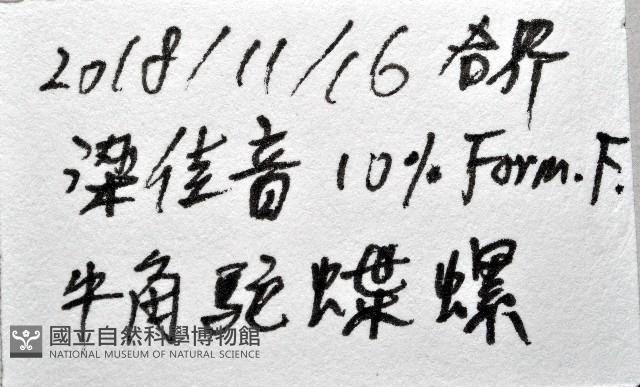 2018/11/16 香界
梁佳音 10% Form. F.
牛角駝蝶螺
國立自然科學博物館
NATIONAL MUSEUM OF NATURAL SCIENCE